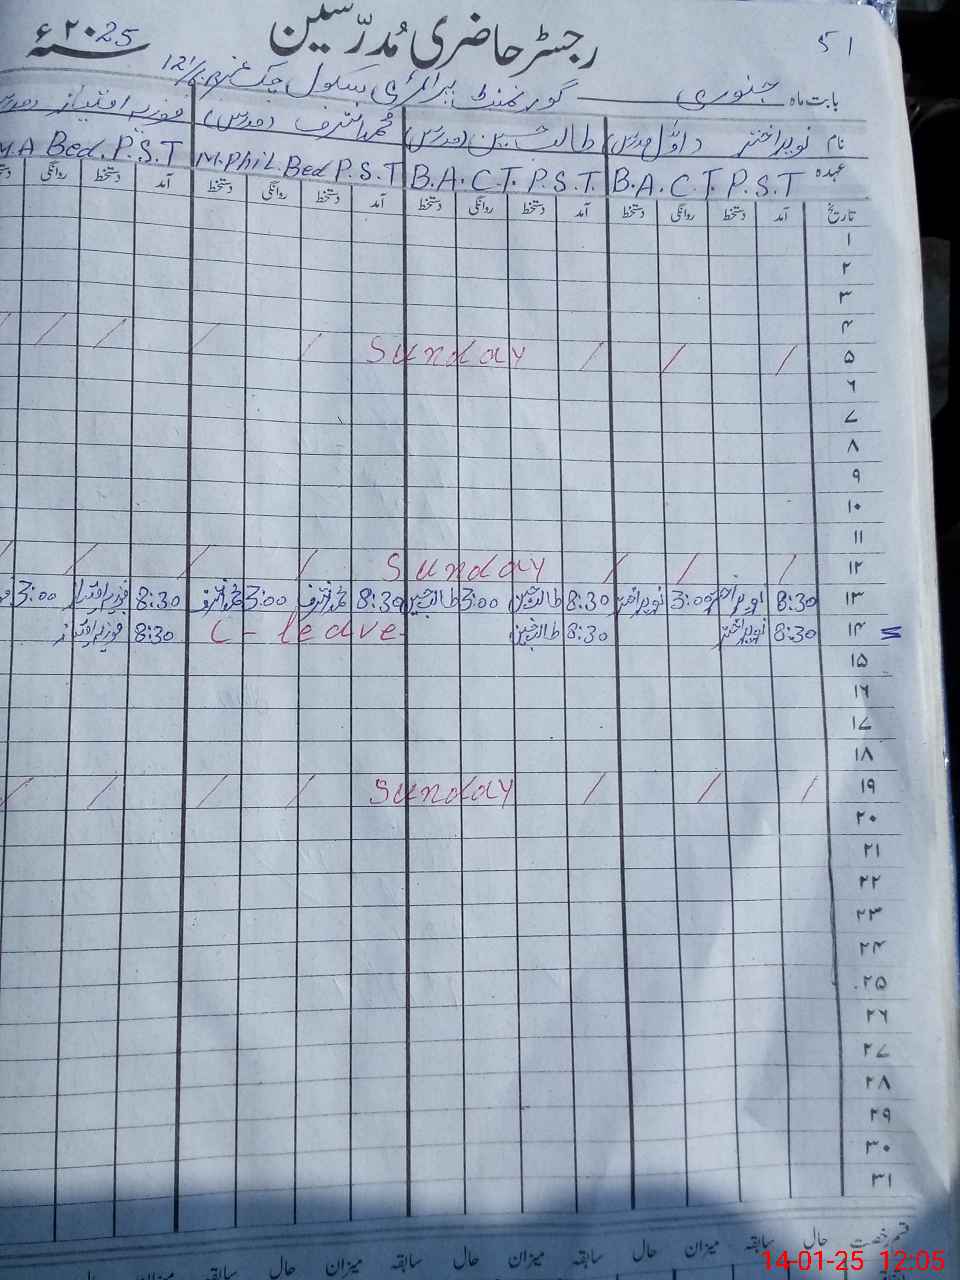 رجسٹر حاضری مُدرّسین
۲۰25ء
51
بابت ماہ جنوری گورنمنٹ پرائمری سکول چک نمبر
نام نوید اختر (اوّل مدرس) طالب حسین (مدرس) محمد اشرف (مدرس) فوزیہ امتیاز
عہدہ B.A.C.T. P.S.T B.A.C.T. P.S.T. M.Phil. Bed P.S.T M.A Bed. P.S.T
تاریخ آمد دستخط روانگی دستخط آمد دستخط روانگی دستخط آمد دستخط روانگی دستخط آمد دستخط روانگی
۱
۲
۳
۴
۵ / / / Sunday / / / / /
۶
۷
۸
۹
۱۰
۱۱
۱۲ / / / Sunday / / / /
۱۳ 8:30 نوید اختر 3:00 نوید اختر 8:30 طالب حسین 3:00 طالب حسین 8:30 محمد اشرف 3:00 محمد اشرف 8:30 فوزیہ امتیاز 3:00
۱۴ 8:30 نوید اختر 8:30 طالب حسین C - leave 8:30 فوزیہ امتیاز
۱۵
۱۶
۱۷
۱۸
۱۹ / / / Sunday / / / /
۲۰
۲۱
۲۲
۲۳
۲۴
۲۵
۲۶
۲۷
۲۸
۲۹
۳۰
۳۱
قسم رخصت حال سابقہ میزان حال سابقہ میزان حال سابقہ میزان حال سابقہ میزان حال
14-01-25 12:05